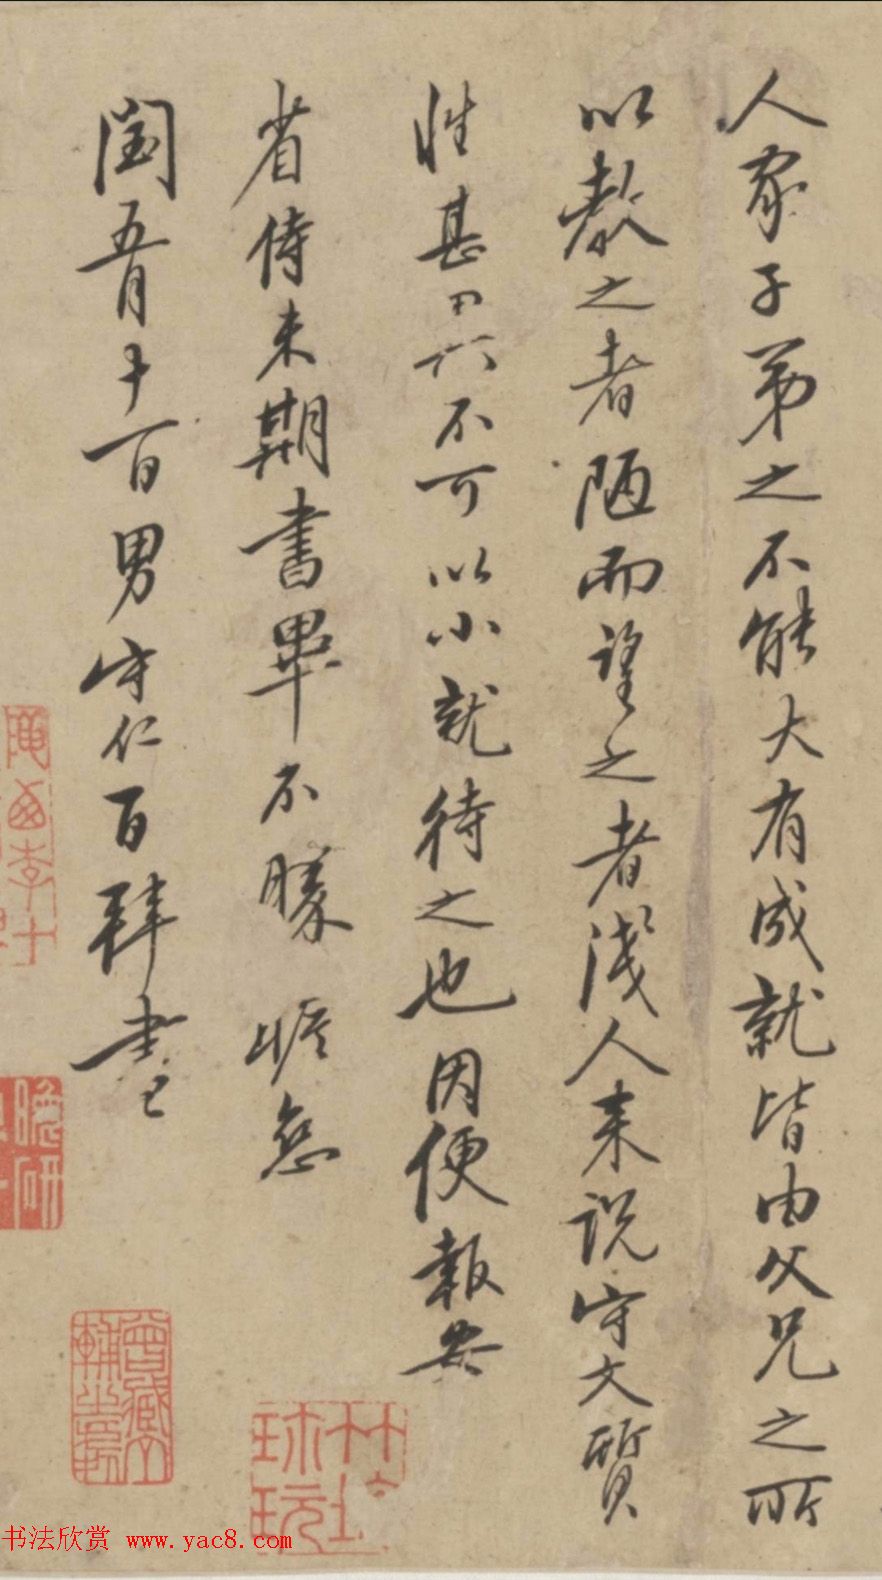 人家子弟之不能大有成就皆由父兄之所
以教之者陋而望之者淺人来説守文質
性甚不可以小就待之也因便報安
省侍未期書畢不勝瞻恋
閏五月十一日男守仁百拜書
書法欣赏 www.yac8.com